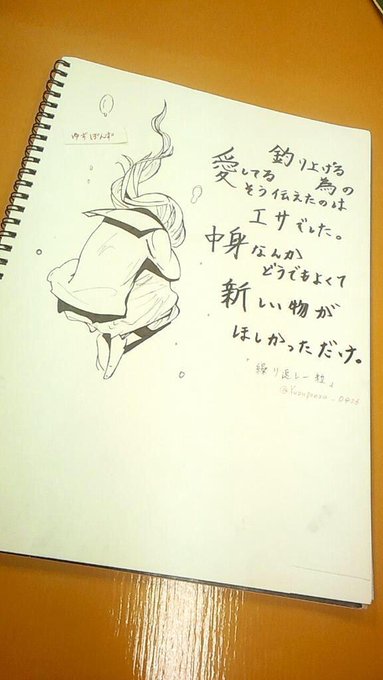 ゆずぽんず
釣り上げる
為の
愛してる
そう伝えたのは
エサでした。
中身なんか
どうでもよくて
新しい物が
ほしかっただけ。
「繰り返し一粒」